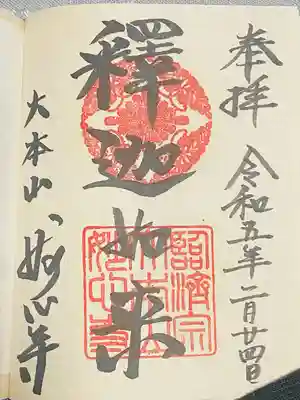 奉拝
令和五年二月廿四日
釋迦如来
大本山 妙心寺
臨済宗
大本山
妙心寺